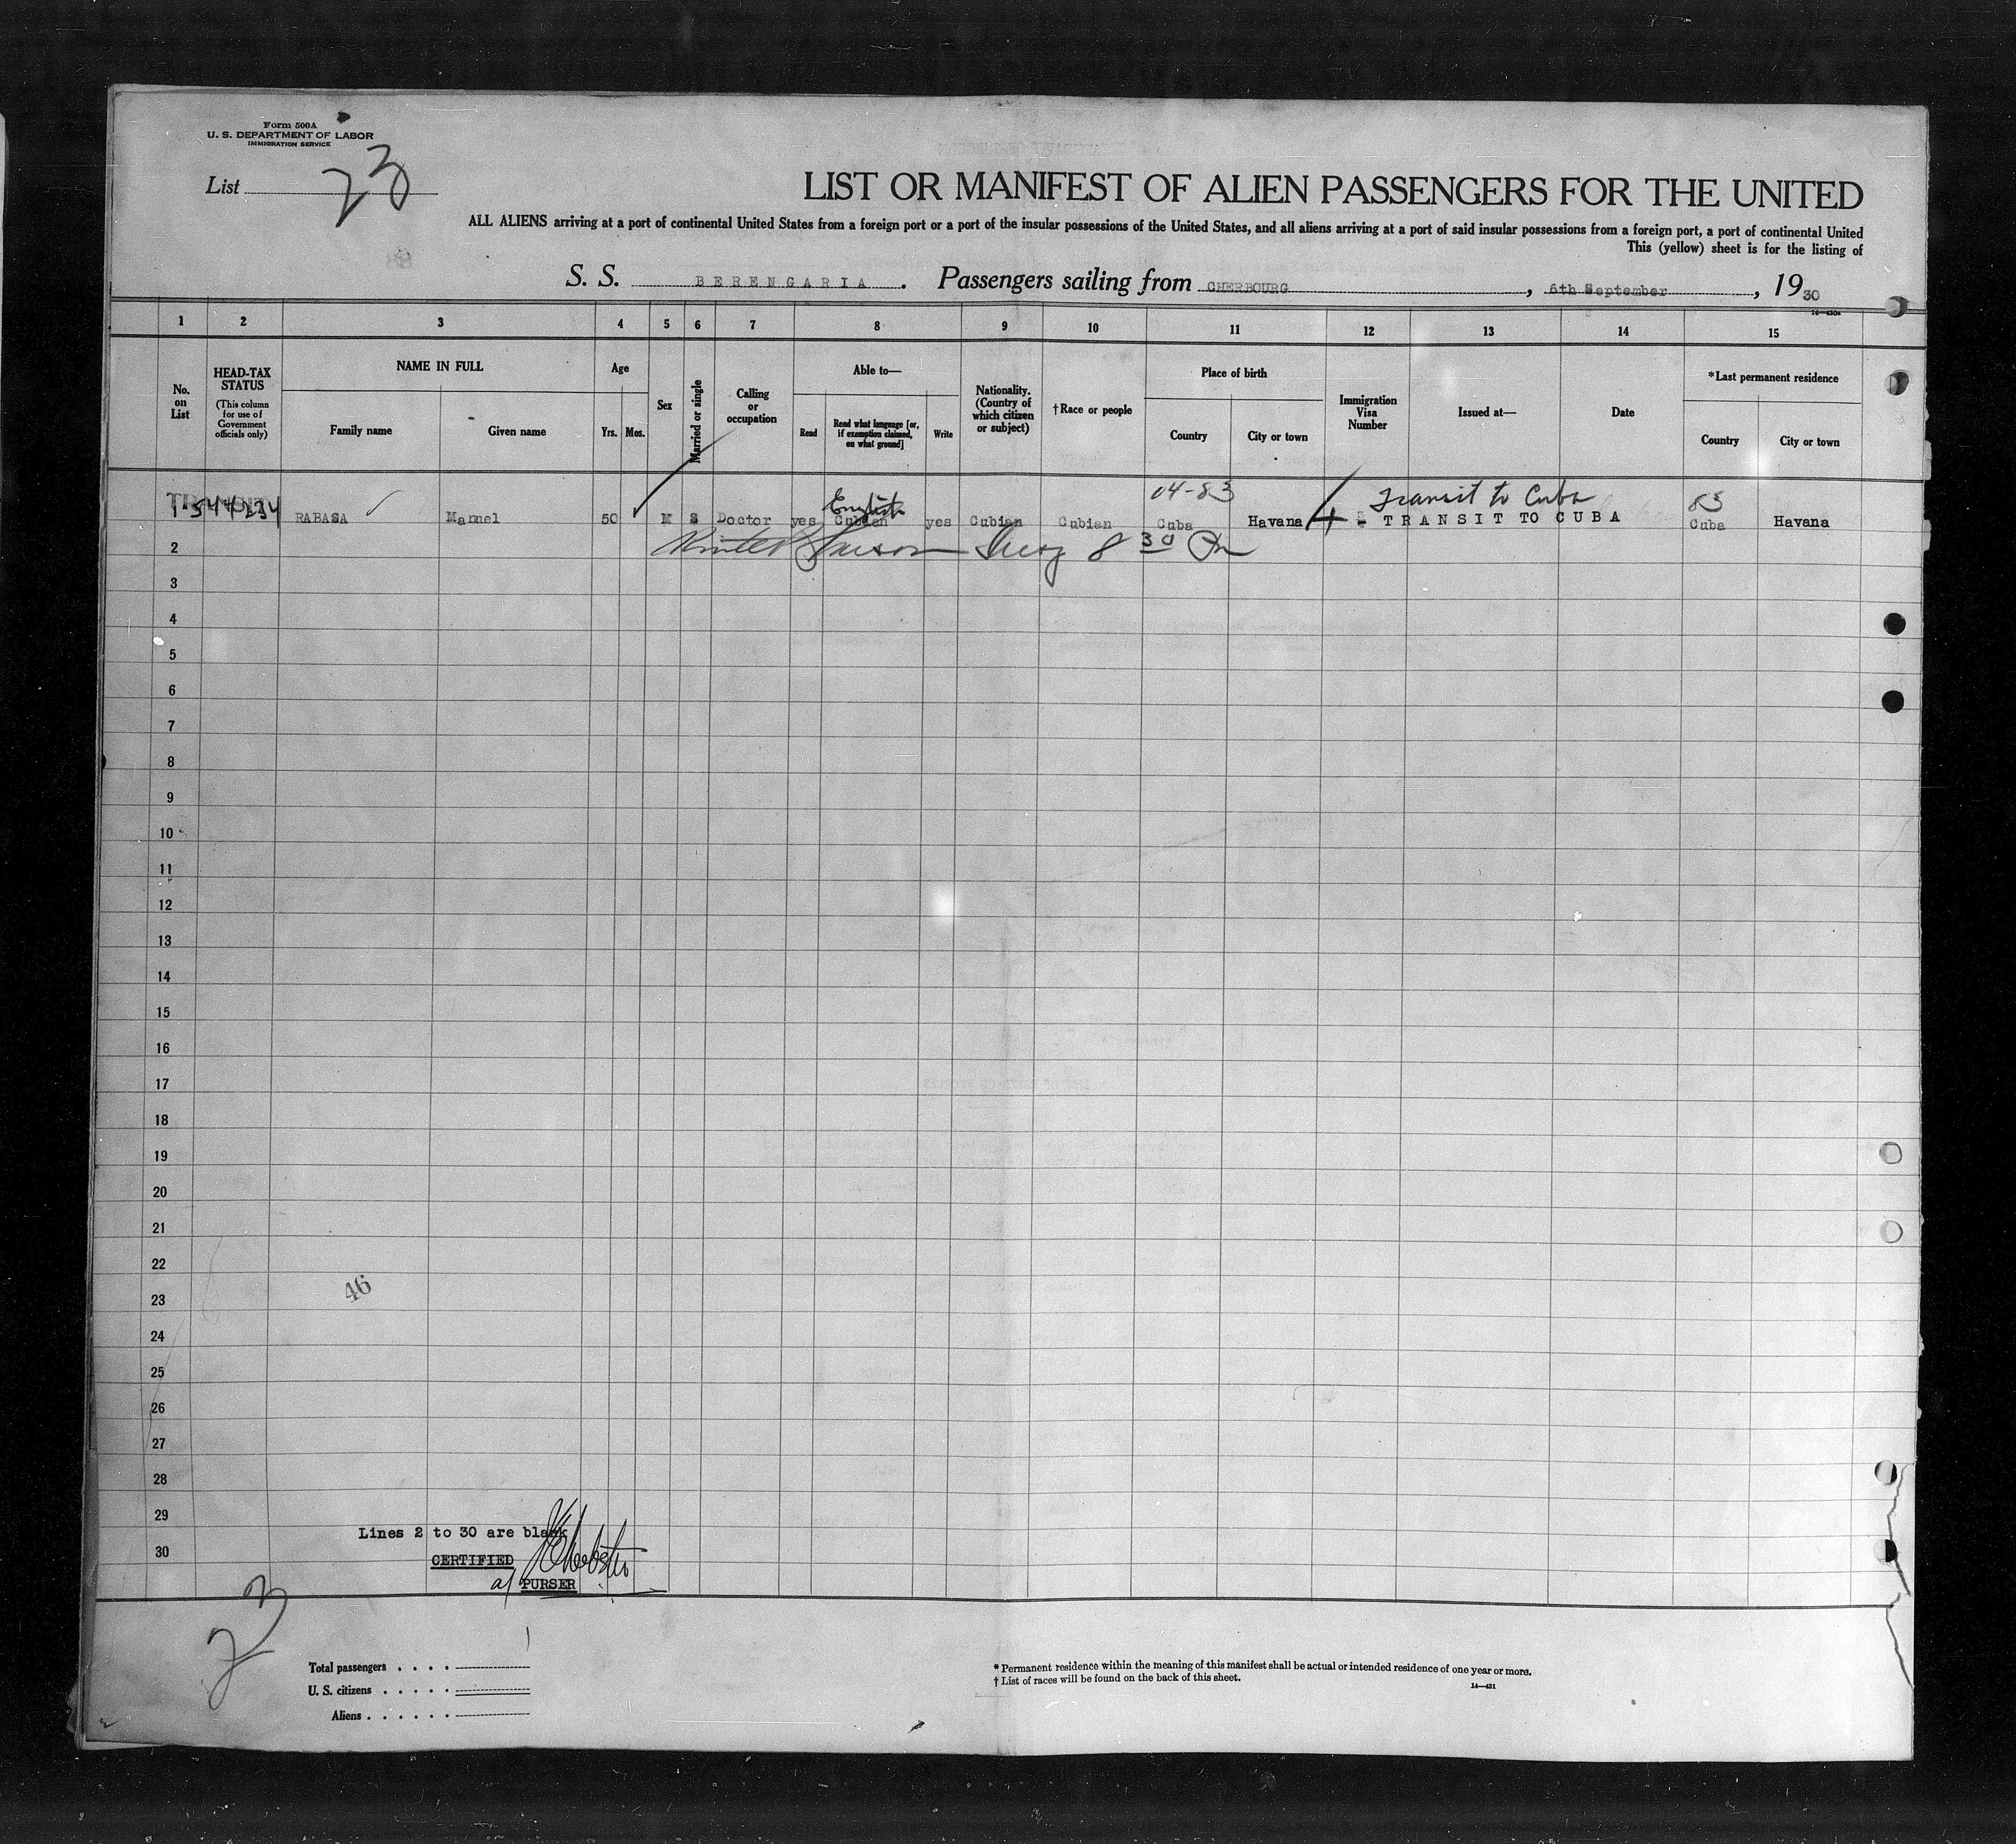 Form 500A
U. S. DEPARTMENT OF LABOR
IMMIGRATION SERVICE
List 23
LIST OR MANIFEST OF ALIEN PASSENGERS FOR THE UNITED
ALL ALIENS arriving at a port of continental United States from a foreign port or a port of the insular possessions of the United States, and all aliens arriving at a port of said insular possessions from a foreign port, a port of continental United
This (yellow) sheet is for the listing of
S. S. BERENGARIA. Passengers sailing from CHERBOURG, 6th September, 19 30
1 2 3 4 5 6 7 8 9 10 11 12 13 14 15
No. on List
HEAD-TAX STATUS (This column for use of Government officials only)
NAME IN FULL
Family name Given name
Age
Yrs. Mos.
Sex
Married or single
Calling or occupation
Able to—
Read
Read what language [or, if exemption claimed, on what ground]
Write
Nationality. (Country of which citizen or subject)
†Race or people
Place of birth
Country City or town
Immigration Visa Number
Issued at—
Date
*Last permanent residence
Country City or town
04-83 Transit to Cuba 83
TRANSIT English
1 RABASA Manuel 50 M S Doctor yes Cubian yes Cubian Cubian Cuba Havana TRANSIT TO CUBA Cuba Havana
8 30
2
3
4
5
6
7
8
9
10
11
12
13
14
15
16
17
18
19
20
21
22
46
23
24
25
26
27
28
29
Lines 2 to 30 are blank
30
CERTIFIED
PURSER
23
Total passengers . . . . 1
U. S. citizens . . . . .
Aliens . . . . . .
* Permanent residence within the meaning of this manifest shall be actual or intended residence of one year or more.
† List of races will be found on the back of this sheet.
14—431